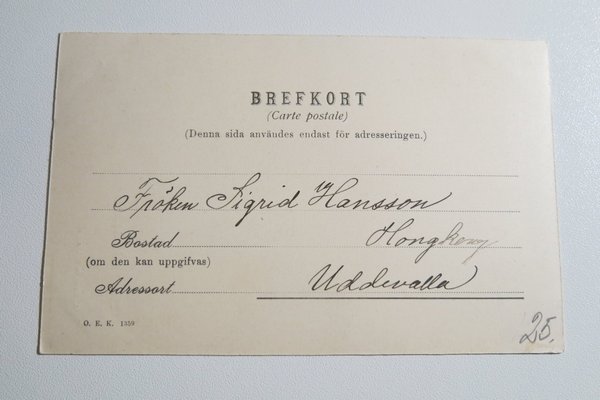 BREFKORT
(Carte postale)
(Denna sida användes endast för adresseringen.)
Fröken Sigrid Hansson
Bostad Hongkong
(om den kan uppgifvas)
Adressort Uddevalla
O. E. K. 1359
25.